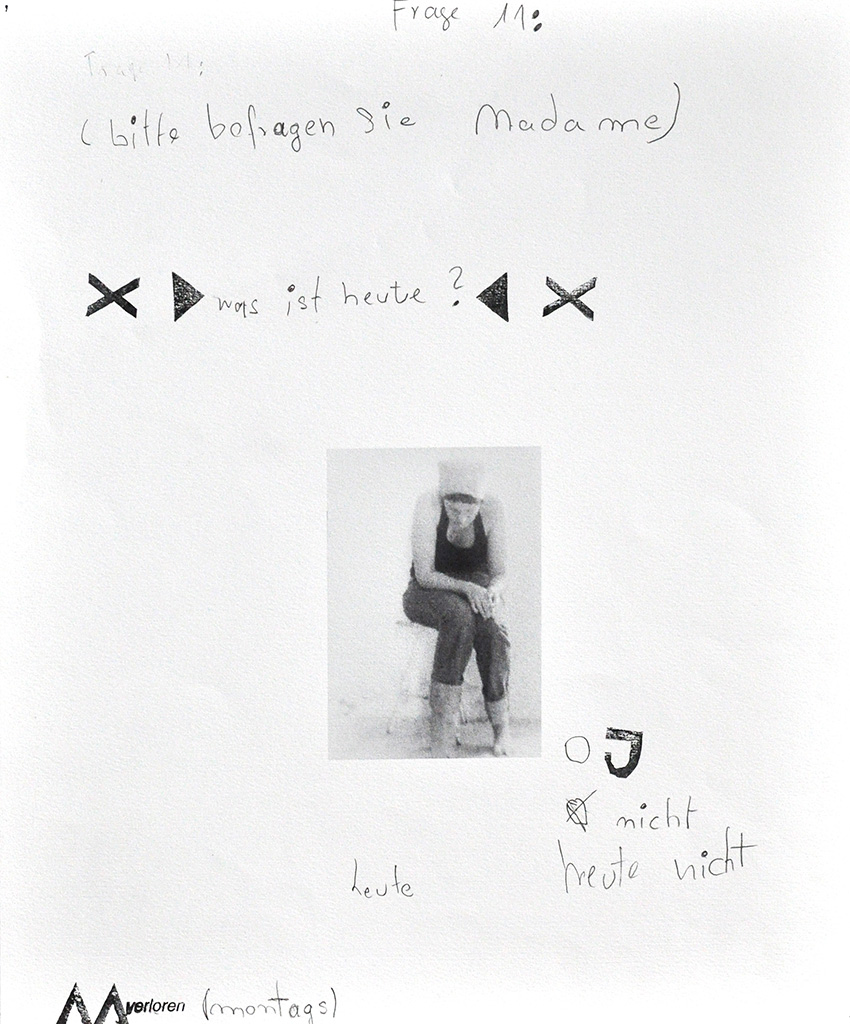 Frage 11:
Frage 11:
(bitte befragen Sie Madame)
X ▶ was ist heute? ◀ X
O J
nicht
heute nicht
heute
M verloren (montags)